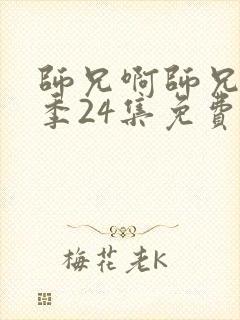 師兄啊師兄
季24集免費
梅花老K